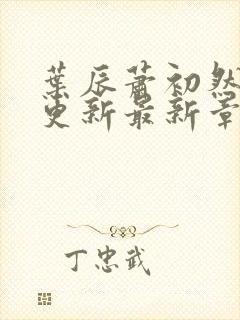 葉辰蕭初然
更新最新章
丁忠武